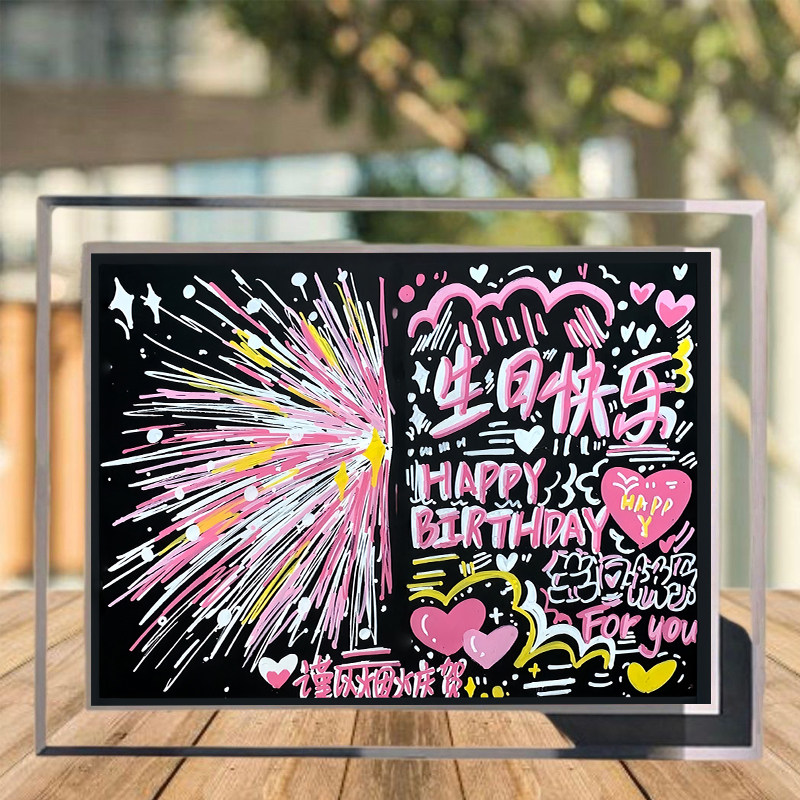 生日快乐
HAPPY
BIRTHDAY
HAPP
Y
生日快乐
For you
谨以烟火庆贺